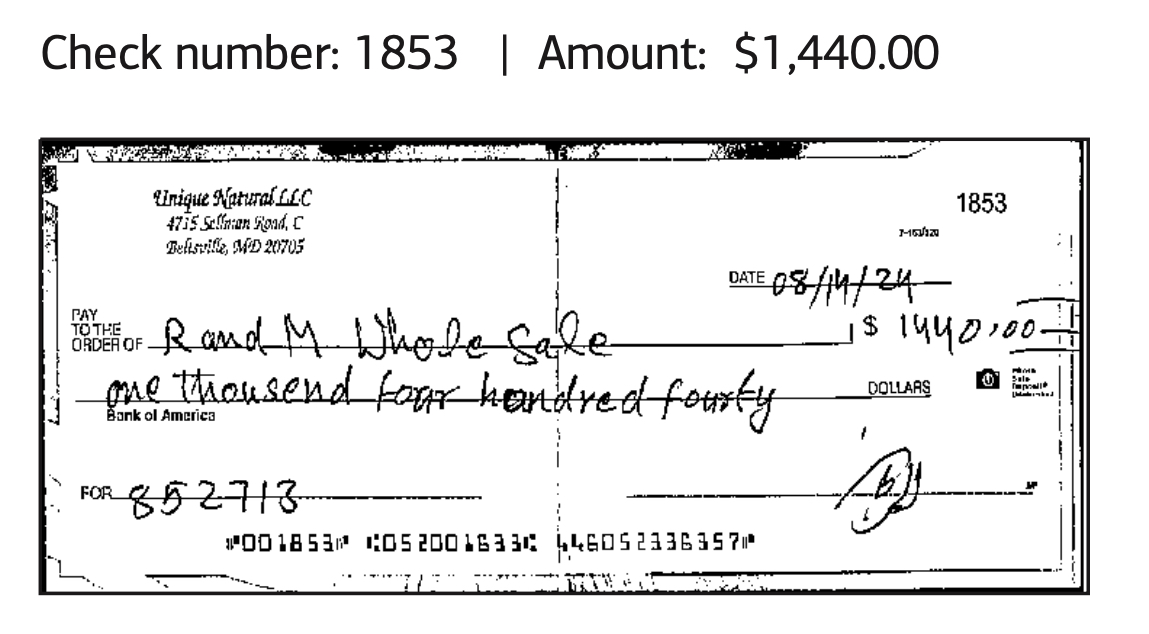 Check number: 1853 | Amount: $1,440.00
Unique Natural LLC
4715 Sellman Road, C
Beltsville, MD 20705
1853
7-163/520
DATE 08/14/24
PAY
TO THE
ORDER OF R and M Whole Sale $ 1440.00
one thousend four hondred fourty DOLLARS
Photo
Safe
Deposit®
Bank of America
FOR 852713
MP
⑈001853⑈ ⑆052001633⑆ 446052336357⑈